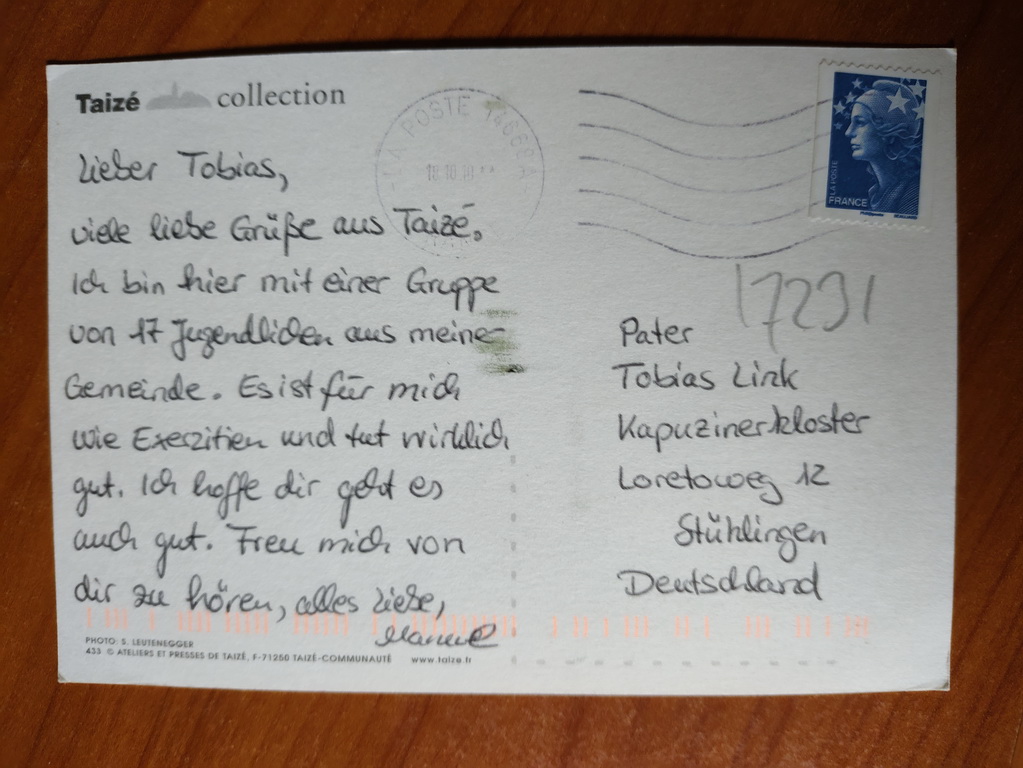 Taizé collection
LA POSTE 14668A
18.10.10
LA POSTE
FRANCE
Lieber Tobias,
viele liebe Grüße aus Taizé.
Ich bin hier mit einer Gruppe
von 17 Jugendlichen aus meiner
Gemeinde. Es ist für mich
wie Exerzitien und tut wirklich
gut. Ich hoffe dir geht es
auch gut. Freu mich von
dir zu hören, alles Liebe,
Manuel
17231
Pater
Tobias Link
Kapuzinerkloster
Loretoweg 12
Stühlingen
Deutschland
PHOTO: S. LEUTENEGGER
433 © ATELIERS ET PRESSES DE TAIZÉ, F-71250 TAIZÉ-COMMUNAUTÉ www.taize.fr